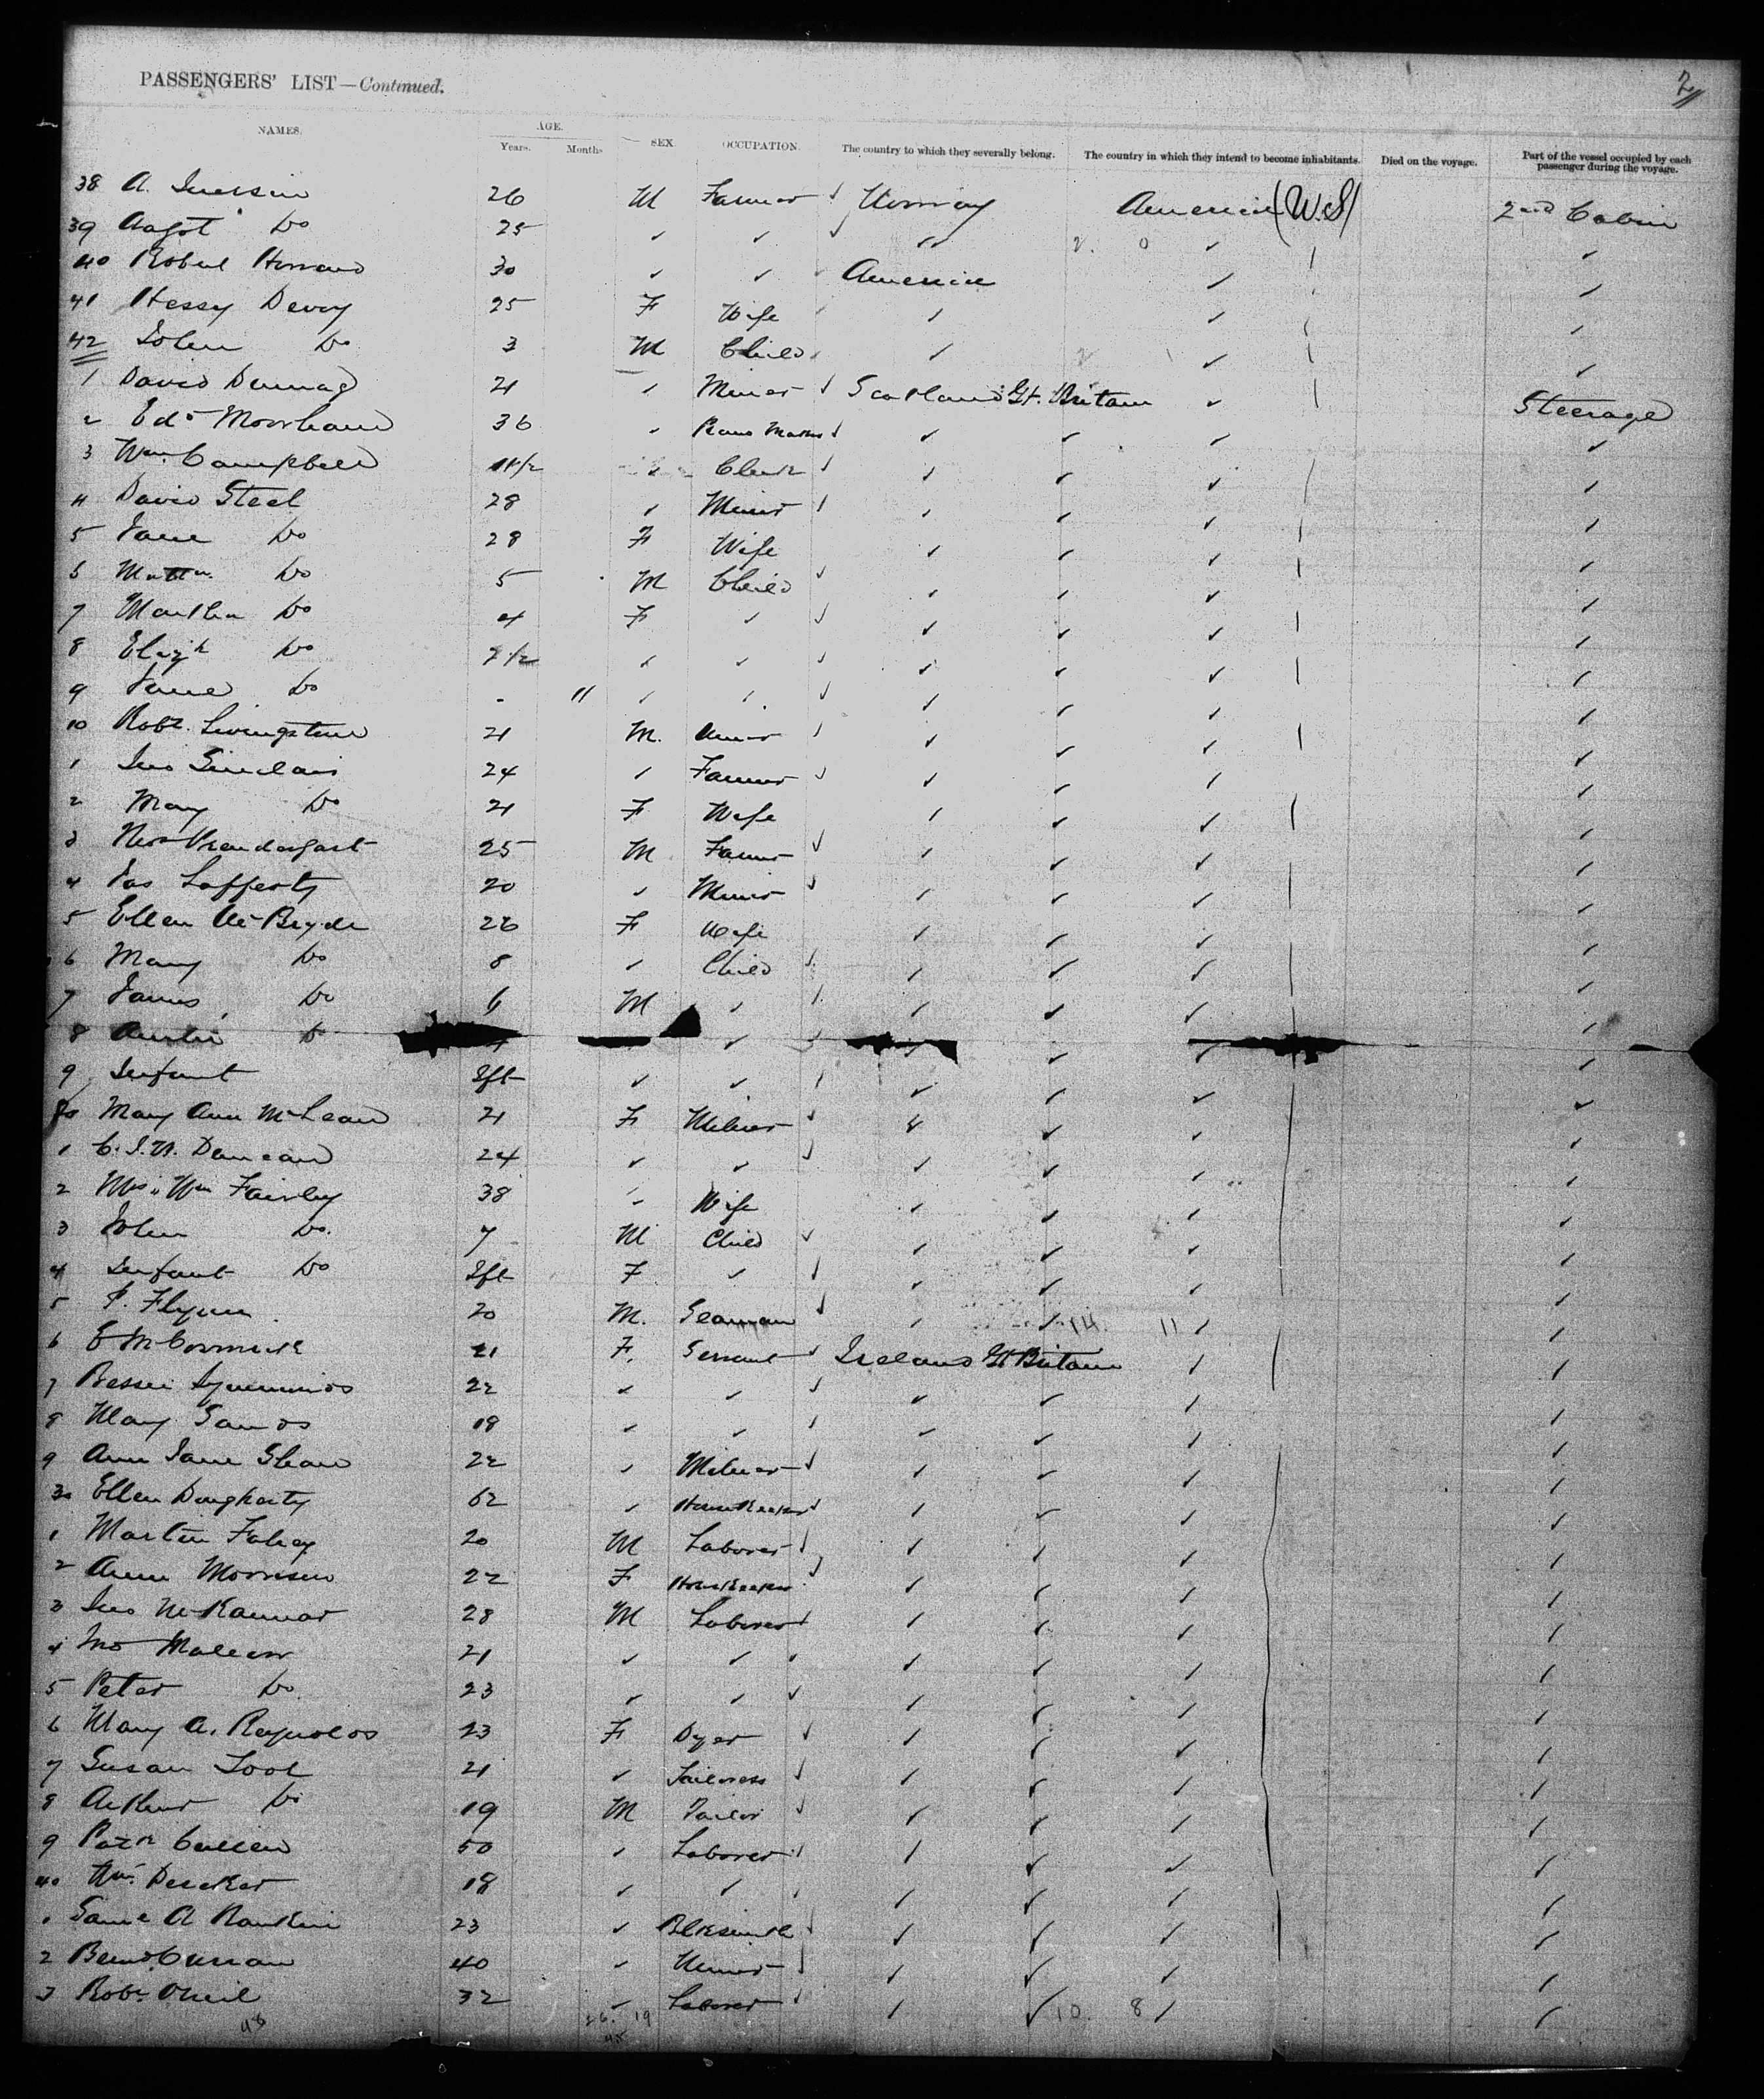 PASSENGERS' LIST—Continued. 2
NAMES. AGE. Years. Months SEX. OCCUPATION. The country to which they severally belong. The country in which they intend to become inhabitants. Died on the voyage. Part of the vessel occupied by each passenger during the voyage.
38 A. 26 M Farmer ✓ Norway America (U.S) 2nd Cabin
39 Do 25 ✓ ✓ ✓ ✓✓ 2. 0 ✓ ✓
40 Robert 30 ✓ ✓ ✓ America ✓ ✓
41 Hessy Devoy 25 F Wife ✓ ✓ ✓
42 John Do 3 M Child ✓ 2 ✓ ✓
1 David 21 ✓ Miner ✓ Scotland Gt. Britain ✓ Steerage
2 Edd 36 ✓ ✓ ✓ ✓ ✓ ✓
3 Wm. Campbell ✓ Clerk ✓ ✓ ✓ ✓ ✓
4 David Steel 28 ✓ Miner ✓ ✓ ✓ ✓ ✓
5 Jane Do 28 F Wife ✓ ✓ ✓ ✓
6 Do 5 M Child ✓ ✓ ✓ ✓ ✓
7 Martha Do 4 F ✓ ✓ ✓ ✓ ✓ ✓
8 Elizh Do ✓ ✓ ✓ ✓ ✓ ✓ ✓
9 Jane Do - 11 ✓ ✓ ✓ ✓ ✓ ✓ ✓
10 Robt. Livingstone 21 M. Miner ✓ ✓ ✓ ✓ ✓
1 Jno Sinclair 24 ✓ Farmer ✓ ✓ ✓ ✓ ✓
2 Mary Do 21 F Wife ✓ ✓ ✓ ✓
3 Prendergast 25 M Farmer ✓ ✓ ✓ ✓ ✓
4 Jas Lafferty 20 ✓ Miner ✓ ✓ ✓ ✓ ✓
5 Ellen McBryde 26 F Wife ✓ ✓ ✓ ✓
6 Mary Do 8 ✓ Child ✓ ✓ ✓ ✓ ✓
7 James Do 6 M ✓ ✓ ✓ ✓ ✓ ✓
8 Do ✓ ✓ ✓ ✓ ✓ ✓
9 Infant Ift ✓ ✓ ✓ ✓ ✓ ✓ ✓
20 Mary Ann McLean 21 F Milner ✓ ✓ ✓ ✓ ✓
1 Duncan 24 ✓ ✓ ✓ ✓ ✓ ✓ ✓
2 Mrs. Wm Fairley 38 ✓ Wife ✓ ✓ ✓ ✓
3 John Do. 7 M Child ✓ ✓ ✓ ✓ ✓
4 Infant Do Ift F ✓ ✓ ✓ ✓ ✓ ✓
5 P. Flynn 20 M. Seaman ✓ ✓ ✓ 14. 11 ✓ ✓
6 E McCormick 21 F. Servant ✓ Ireland Gt Britain ✓ ✓
7 Bessie 22 ✓ ✓ ✓ ✓ ✓ ✓ ✓
8 Mary Sands 18 ✓ ✓ ✓ ✓ ✓ ✓ ✓
9 Ann Jane Shaw 22 ✓ Milner ✓ ✓ ✓ ✓ ✓
30 Ellen Dougherty 62 ✓ Housekeeper ✓ ✓ ✓ ✓ ✓
1 Martin Fahey 20 M Laborer ✓ ✓ ✓ ✓ ✓
2 Annie Morrison 22 F Housekeeper ✓ ✓ ✓ ✓ ✓
3 Jno 28 M Laborer ✓ ✓ ✓ ✓ ✓
4 Jno 21 ✓ ✓ ✓ ✓ ✓ ✓ ✓
5 Peter Do. 23 ✓ ✓ ✓ ✓ ✓ ✓ ✓
6 Mary A. Reynolds 23 F Dyer ✓ ✓ ✓ ✓ ✓
7 Susan Tool 21 ✓ Tailoress ✓ ✓ ✓ ✓ ✓
8 Arthur Do 19 M Tailor ✓ ✓ ✓ ✓ ✓
9 Patk Cullen 50 ✓ Laborer ✓ ✓ ✓ ✓ ✓
40 Wm. 18 ✓ ✓ ✓ ✓ ✓ ✓ ✓
1 Saml A Rankin 23 ✓ Blksmith ✓ ✓ ✓ ✓ ✓
2 Bernd Curran 40 ✓ Miner ✓ ✓ ✓ ✓ ✓
3 Robt. ONeil 32 ✓ Laborer ✓ ✓ ✓ 10. 8 ✓ ✓
48 26. 19